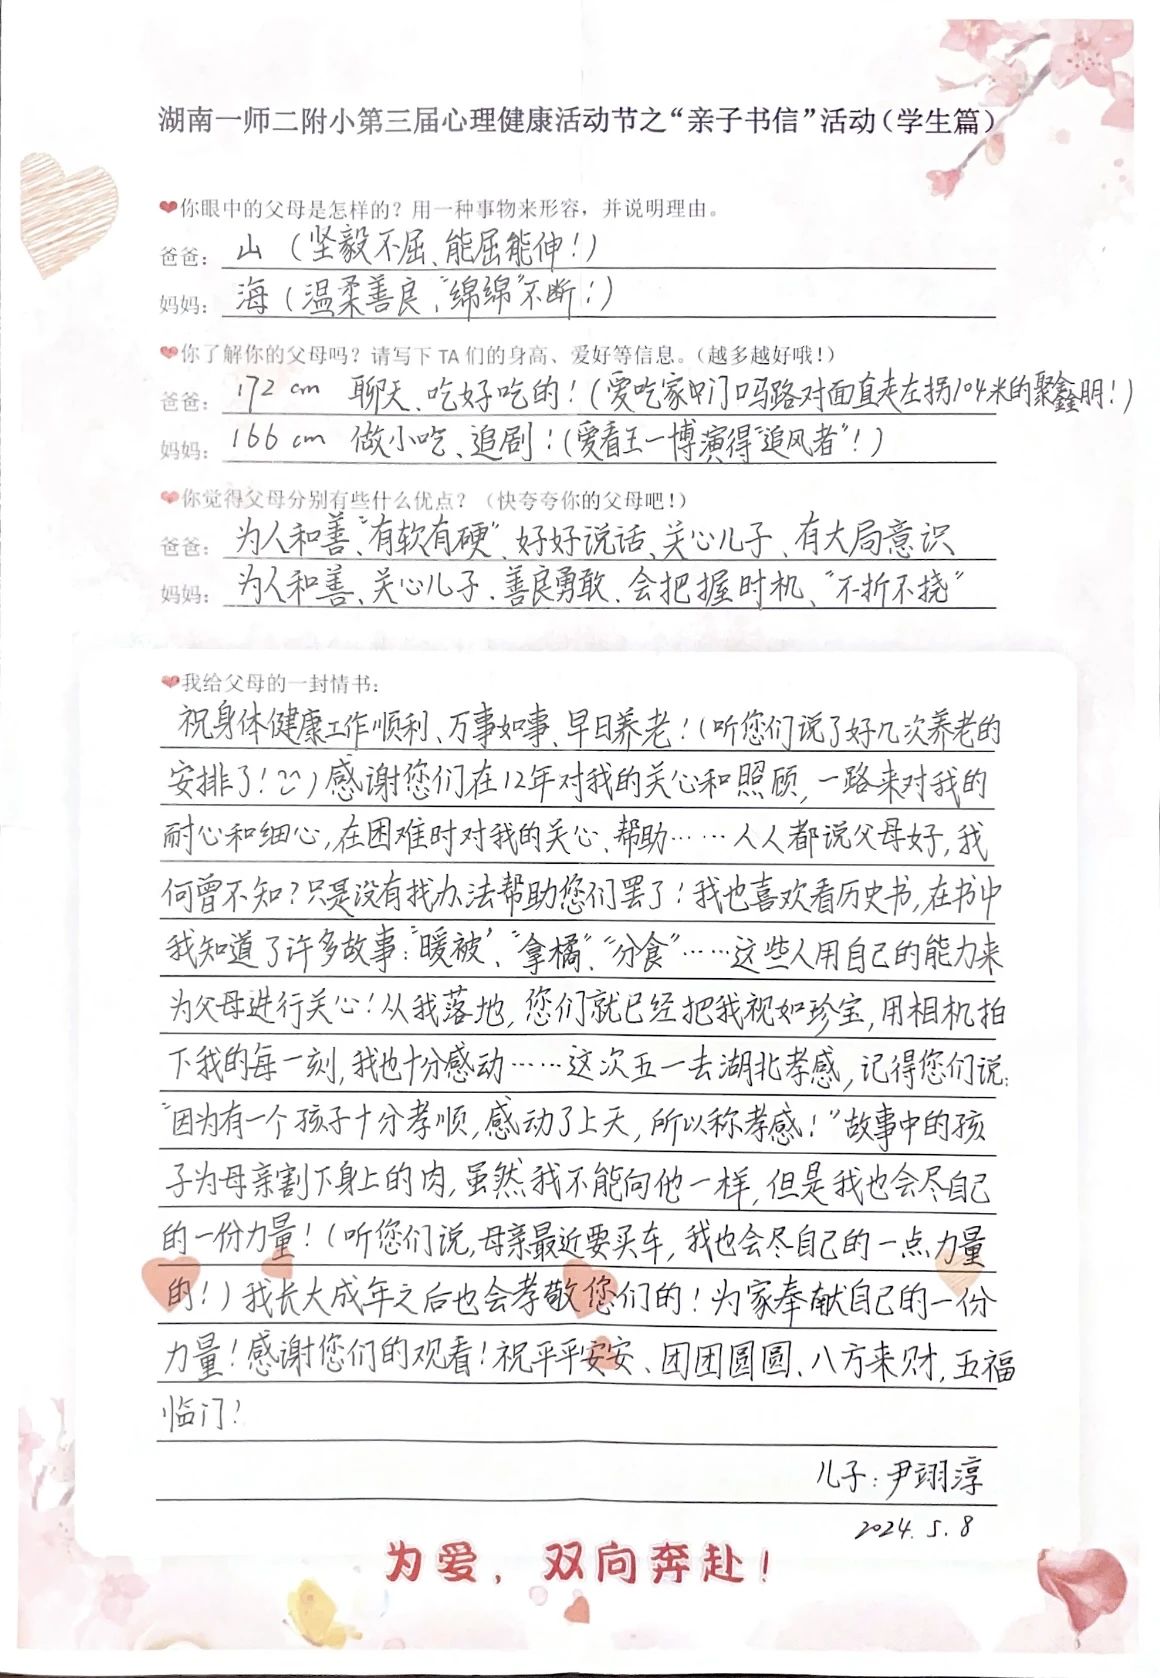 湖南一师二附小第三届心理健康活动节之“亲子书信”活动（学生篇）
❤你眼中的父母是怎样的？用一种事物来形容，并说明理由。
爸爸：山（坚毅不屈、能屈能伸！）
妈妈：海（温柔善良、“绵绵”不断！）
❤你了解你的父母吗？请写下 TA 们的身高、爱好等信息。（越多越好哦！）
爸爸：172 cm 聊天、吃好吃的！（爱吃家中门口吗路对面直走左拐104米的聚鑫朋！）
妈妈：166 cm 做小吃、追剧！（爱看王一博演得“追风者”！）
❤你觉得父母分别有些什么优点？（快夸夸你的父母吧！）
爸爸：为人和善、“有软有硬”、好好说话、关心儿子、有大局意识
妈妈：为人和善、关心儿子、善良勇敢、会把握时机、“不折不挠”
❤我给父母的一封情书：
祝身体健康工作顺利、万事如事、早日养老！（听您们说了好几次养老的
安排了！）感谢您们在12年对我的关心和照顾，一路来对我的
耐心和细心，在困难时对我的关心、帮助……人人都说父母好，我
何曾不知？只是没有找办法帮助您们罢了！我也喜欢看历史书，在书中
我知道了许多故事：“暖被”、“拿橘”、“分食”……这些人用自己的能力来
为父母进行关心！从我落地，您们就已经把我视如珍宝，用相机拍
下我的每一刻，我也十分感动……这次五一去湖北孝感，记得您们说：
“因为有一个孩子十分孝顺，感动了上天，所以称孝感！”故事中的孩
子为母亲割下身上的肉，虽然我不能向他一样，但是我也会尽自己
的一份力量！（听您们说，母亲最近要买车，我也会尽自己的一点力量
的！）我长大成年之后也会孝敬您们的！为家奉献自己的一份
力量！感谢您们的观看！祝平平安安、团团圆圆、八方来财，五福
临门！
儿子：尹翊淳
2024.5.8
为爱，双向奔赴！